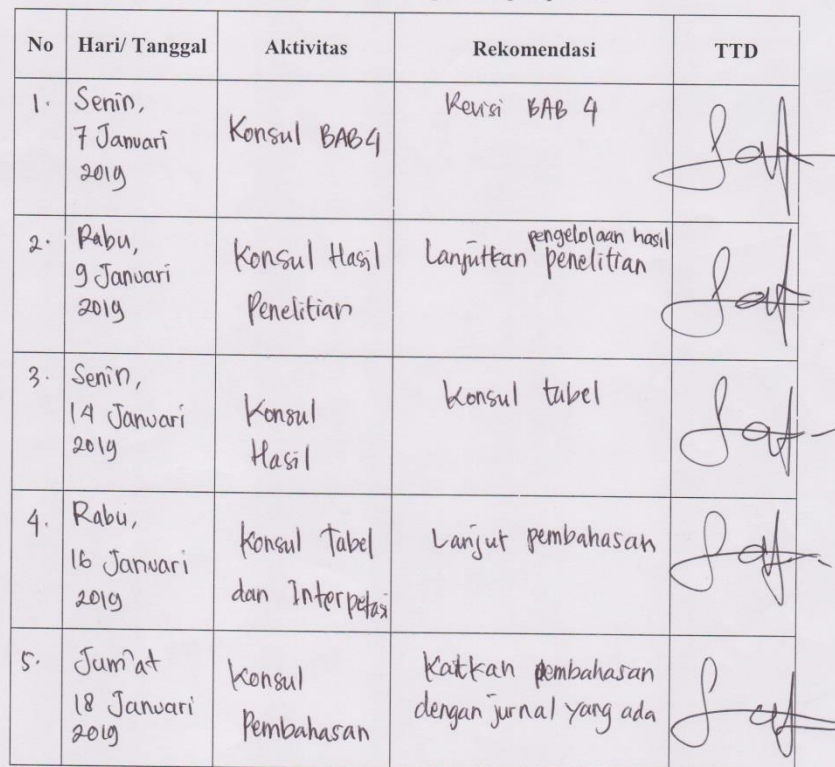 No Hari/ Tanggal Aktivitas Rekomendasi TTD
1. Senin,
7 Januari
2019
Konsul BAB 4
Revisi BAB 4
2. Rabu,
9 Januari
2019
Konsul Hasil
Penelitian
pengelolaan hasil
Lanjutkan penelitian
3. Senin,
14 Januari
2019
Konsul
Hasil
Konsul tabel
4. Rabu,
16 Januari
2019
Konsul Tabel
dan Interpetasi
Lanjut pembahasan
5. Jum'at
18 Januari
2019
Konsul
Pembahasan
Kaitkan pembahasan
dengan jurnal yang ada